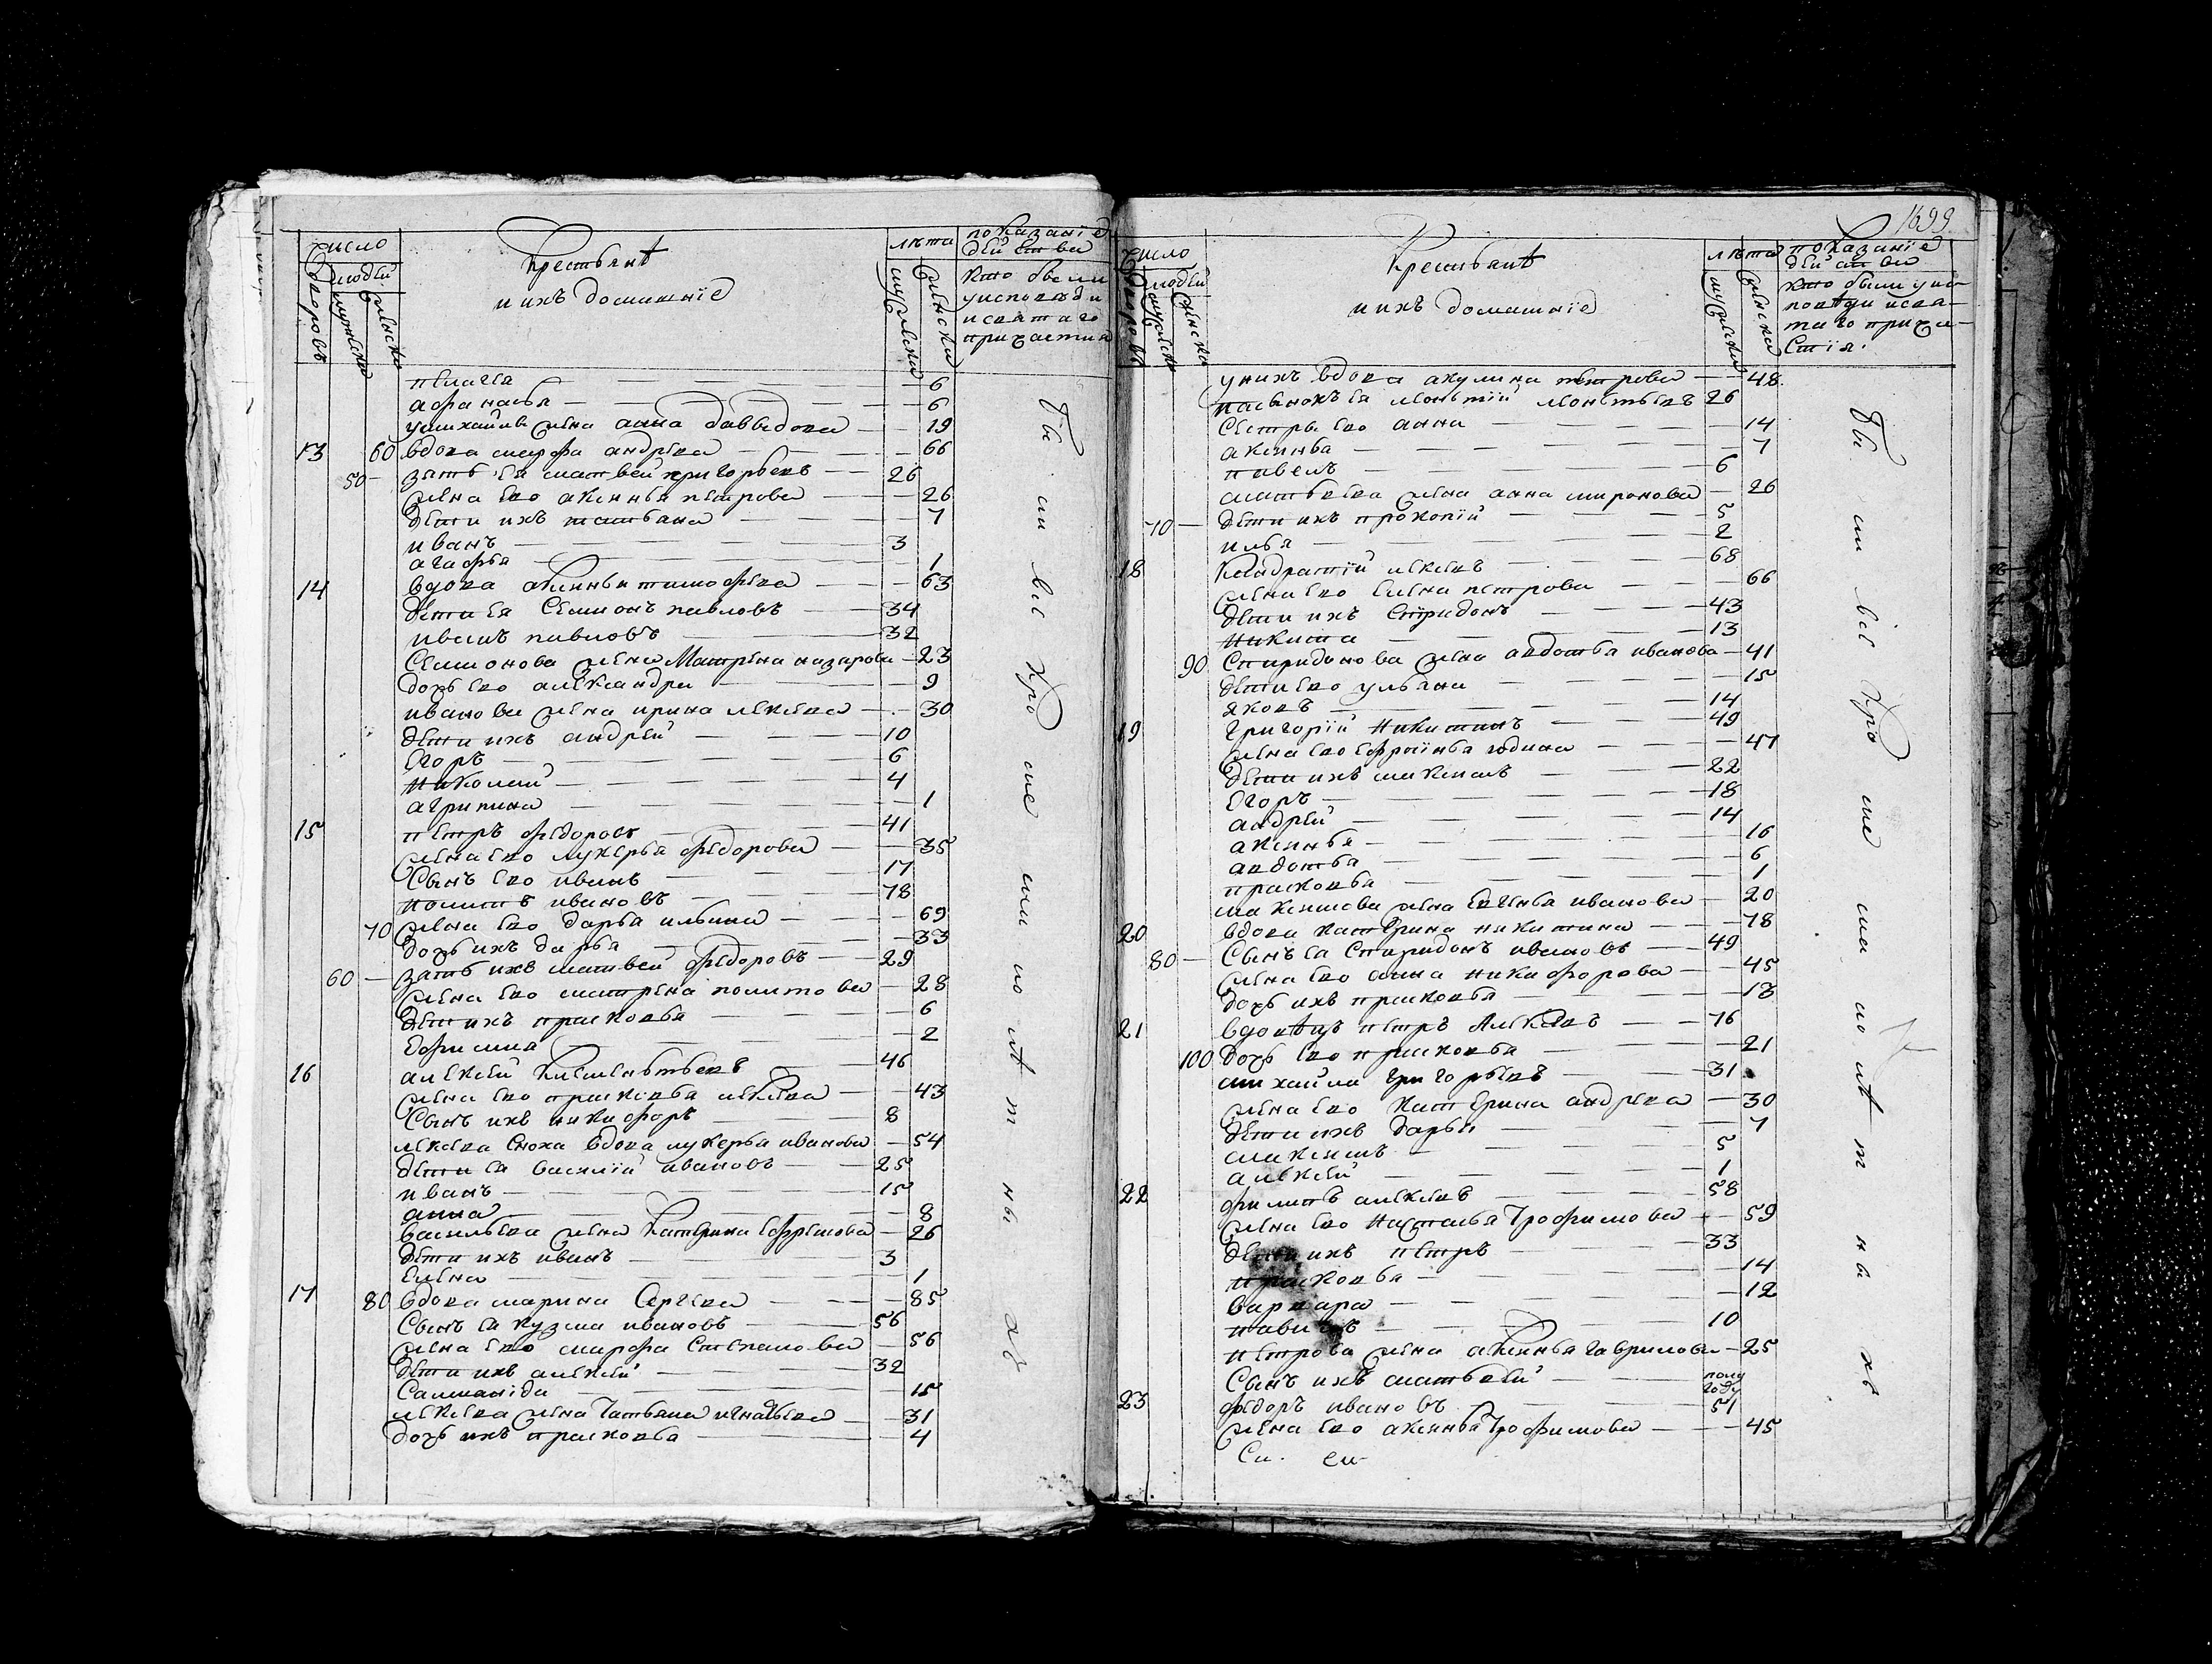 число
дворовъ
людей
мужеска
женска
крестьянѣ
и ихъ домашнїе
лѣта
мужеска
женска
показанїе
действа
кто были
у исповѣди
и святаго
причастия
пелагея 6
афанасья 6
у михайлы жена анна давыдова 19
13 60 вдова марфа андрева 66
50 зять ея матвей григорьевъ 26
жена ево аксинья петрова 26
дети ихъ татьяна 7
иванъ 3
агафья 1
14 вдова аксинья тимофева 63
дети ея семионъ павловъ 34
иванъ павловъ 32
семионова жена Матрена назарова 23
дочь ево александра 9
иванова жена ирина алексева 30
дети ихъ андрей 10
егоръ 6
николай 4
агрипина 1
15 петръ федоровъ 41
жена ево лукерья федорова 35
сынъ ево иванъ 17
иполитъ ивановъ 78
70 жена ево дарья ильина 69
дочь ихъ дарья 33
60 зять ихъ матвей федоровъ 29
жена ево матрена политова 28
дети ихъ прасковья 6
афимия 2
16 алексей климентьевъ 46
жена ево прасковья алексева 43
сынъ ихъ никифоръ 8
алексева сноха вдова лукерья иванова 54
дети ея василїй ивановъ 25
иванъ 15
анна 8
васильева жена катерина ефремова 26
дети ихъ иванъ 3
елена 1
17 80 вдова марина сергева 85
сынъ ея кузма ивановъ 56
жена ево марфа степанова 56
дети ихъ алексей 32
саманїда 15
алексева жена татьяна игнатьева 31
дочь ихъ прасковья 4
1699
число
дворовъ
людей
мужеска
женска
крестьянѣ
и ихъ домашнїе
лѣта
мужеска
женска
показанїе
действа
кто были у ис-
повѣди и свя-
таго прича-
стїя.
у нихъ вдова акулина петрова 48
пасынокъ ея леонтїй леонтьевъ 26
сестры ево анна 14
аксинья 7
павелъ 6
матвеева жена анна миронова 26
70 дети ихъ прокопїй 5
илья 2
18 кондратїй алексевъ 68
жена ево елена петрова 66
дети ихъ спиридонъ 43
никита 13
90 спиридонова жена авдотья иванова 41
дети ево ульяна 15
яковъ 14
19 григорїй никитинъ 49
жена ево ефросинья родина 47
дети ихъ максимъ 22
егоръ 18
андрей 14
аксинья 16
авдотья 6
прасковья 1
максимова жена евгенья иванова 20
20 вдова катерина никитина 78
80 сынъ ея спиридонъ ивановъ 49
жена ево анна никифорова 45
дочь ихъ прасковья 13
21 вдовецъ петръ алексевъ 76
100 дочь ево прасковья 21
михайла григорьевъ 31
жена ево катерина андрева 30
дети ихъ дарья 7
максимъ 5
алексей 1
22 филипъ алексевъ 58
жена ево наталья трофимова 59
дети ихъ петръ 33
прасковья 14
варвара 12
павелъ 10
петрова жена аксинья гаврилова 25
сынъ ихъ матвей полу году
23 федоръ ивановъ 51
жена ево аксинья трофимова 45